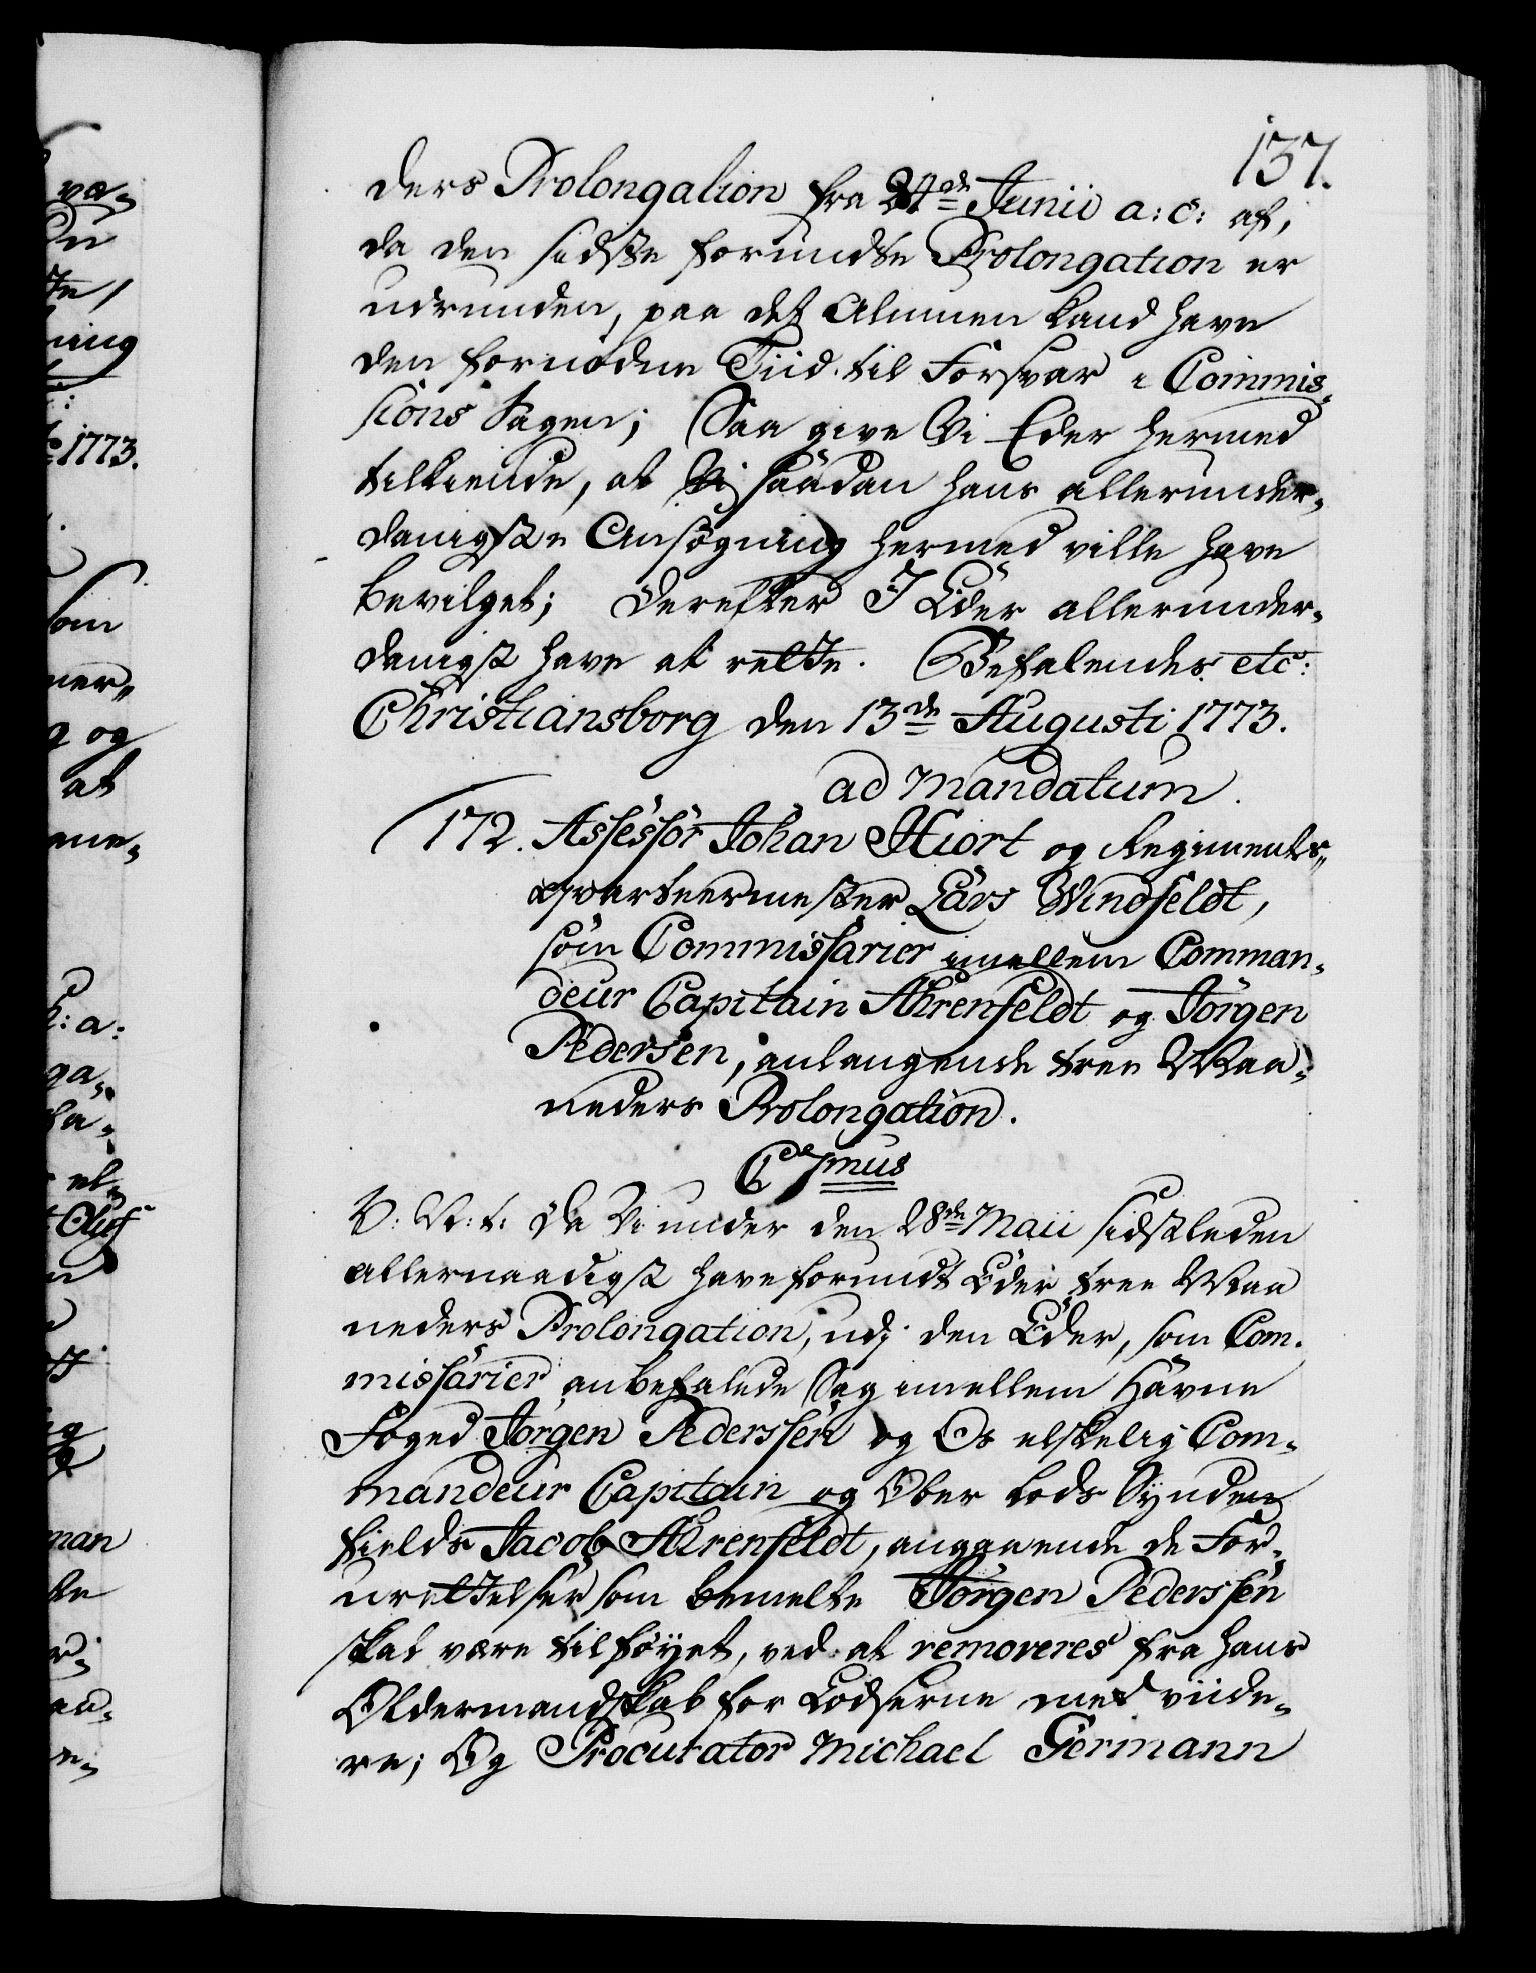 137.
ders Prolongation fra 24de Junii a: c: af,
da den sidste forundte Prolongation er
udrunden, paa det Alumen kand have
den fornødne Tiid til Forsvar i Commis-
sions Sagen; Saa give Vi Eder hermed
tilkiende, at Vi saadan hans allerunder-
danigste Ansøgning hermed ville have
bevilget; Derefter I Eder allerunder-
danigst have at rette. Befalendes etc:
Christiansborg den 13de Augusti 1773.
ad Mandatum.
172. Assessor Johan Hiort og Regiments-
qvarteermester Lars Windfeldt,
som Commissarier imellem Comman-
deur Capitain Ahrenfeldt og Jørgen
Pedersen, anlangende tree Maa-
neders Prolongation.
C 7mus
V: G: t: Da Vi under den 28de Maii sidstleden
allernaadigst have forundt Eder tree Maa
neders Prolongation, udj den Eder, som Com-
missarier anbefalede Sag imellem Havne
Foged Jørgen Pederssen og Os elskelig Com-
mandeur Capitain og Ober Lods Synden
fields Jacob Ahrenfeldt, angaaende de For-
urettelser som bemelte Jørgen Pederssen
skal være tilføyet, ved at removeres fra hans
Oldermandskab for Lodserne med viide-
re; Og Procurator Michael Germann
væ-
ning
1773.
som
ner-
g og
at
ene-
a:
ga-
ta-
et-
man